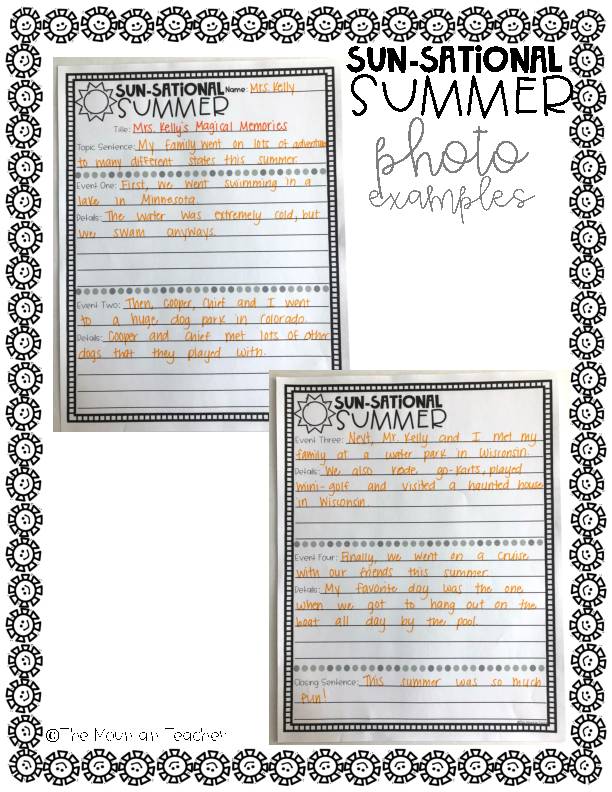 SUN-SATIONAL
SUMMER
photo
examples
SUN-SATIONAL
SUMMER
Name: Mrs. Kelly
Title: Mrs. Kelly's Magical Memories
Topic Sentence: My family went on lots of adventures
to many different states this summer.
Event One: First, we went swimming in a
lake in Minnesota.
Details: The water was extremely cold, but
we swam anyways.
Event Two: Then, Cooper, Chief and I went
to a huge dog park in Colorado.
Details: Cooper and Chief met lots of other
dogs that they played with.
SUN-SATIONAL
SUMMER
Event Three: Next, Mr. Kelly and I met my
family at a water park in Wisconsin.
Details: We also rode go-karts, played
mini-golf and visited a haunted house
in Wisconsin.
Event Four: Finally, we went on a cruise
with our friends this summer.
Details: My favorite day was the one
when we got to hang out on the
boat all day by the pool.
Closing Sentence: This summer was so much
fun!
©The Mountain Teacher